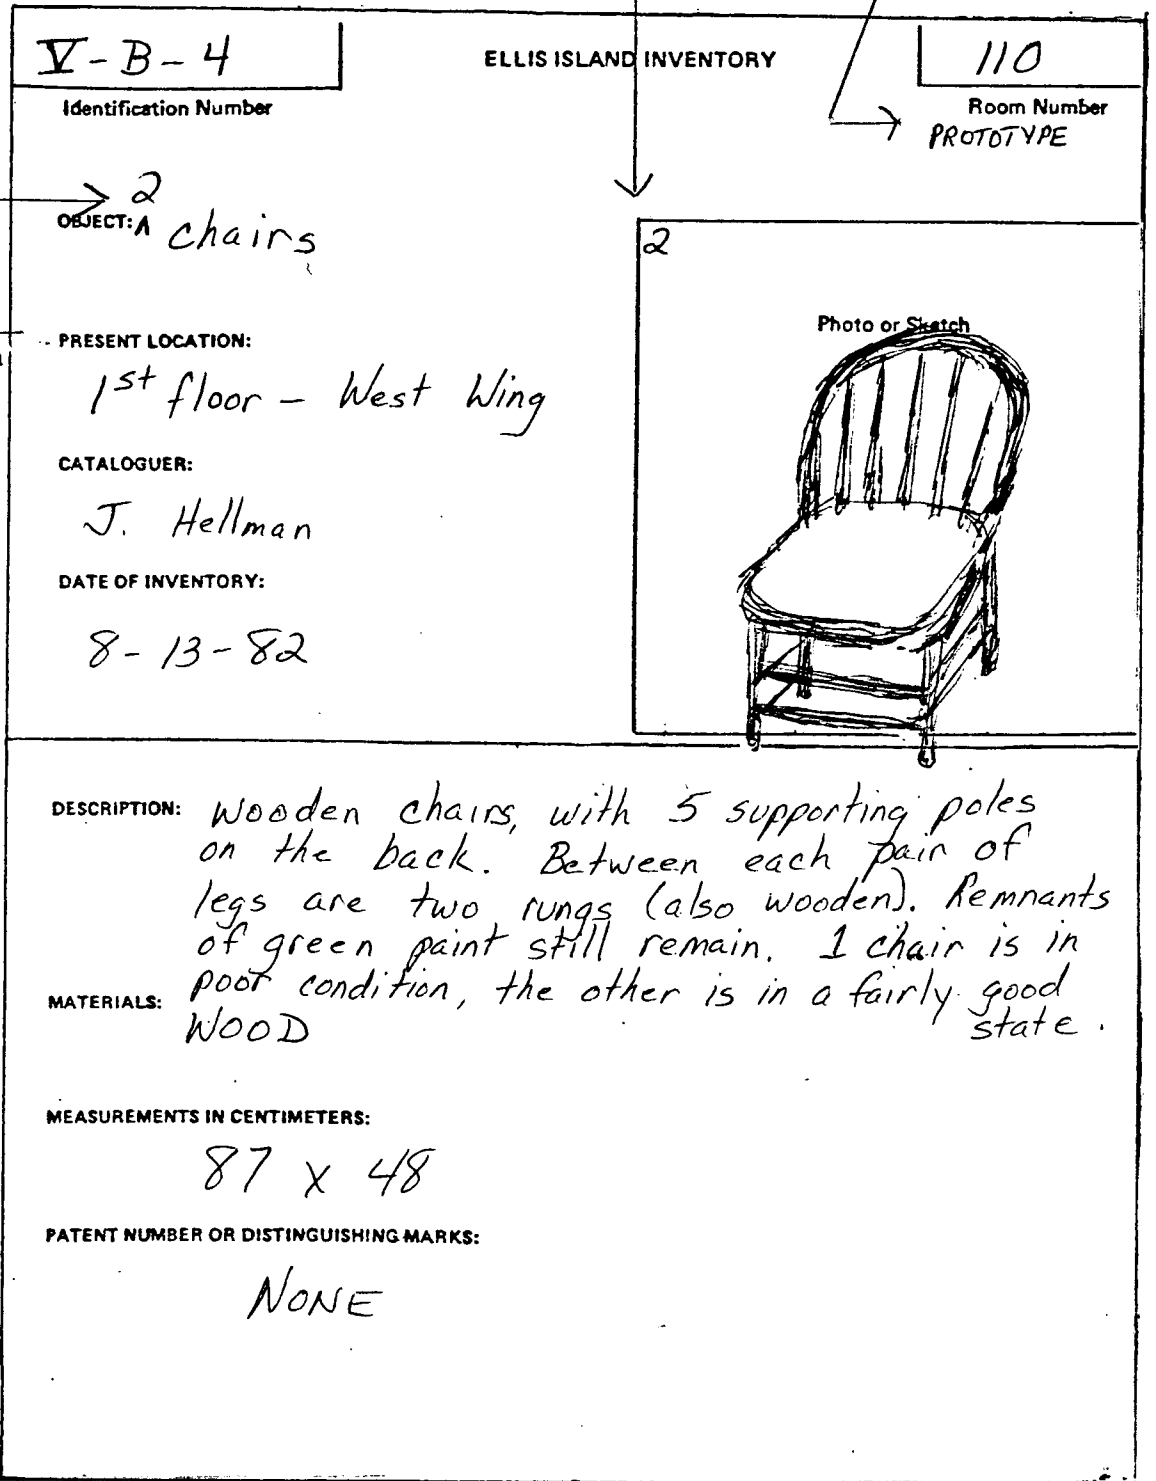 V-B-4
ELLIS ISLAND INVENTORY
110
Identification Number
Room Number
PROTOTYPE
2
OBJECT: ʌ chairs
2
Photo or Sketch
PRESENT LOCATION:
1st floor - West Wing
CATALOGUER:
J. Hellman
DATE OF INVENTORY:
8-13-82
DESCRIPTION: Wooden chairs, with 5 supporting poles
on the back. Between each pair of
legs are two rungs (also wooden). Remnants
of green paint still remain. 1 chair is in
poor condition, the other is in a fairly good
state.
MATERIALS:
WOOD
MEASUREMENTS IN CENTIMETERS:
87 x 48
PATENT NUMBER OR DISTINGUISHING MARKS:
NONE